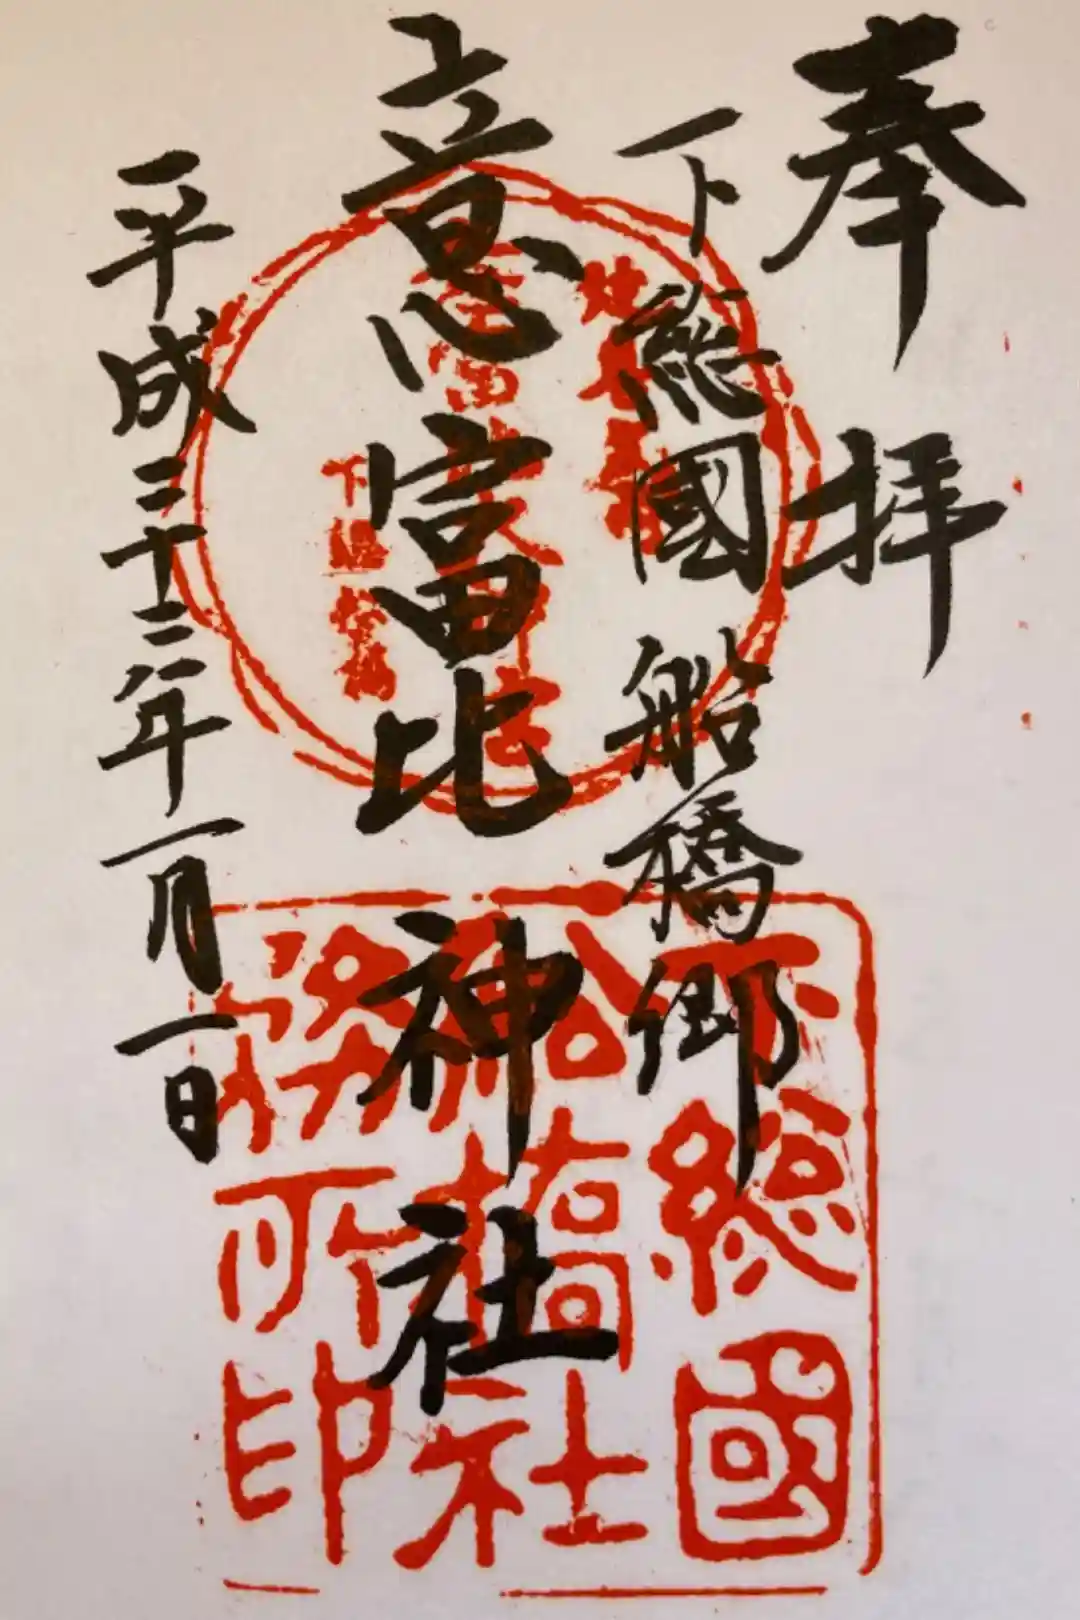 奉拝
下総國船橋郷
意富比神社
平成三十二年一月一日
下総國
船橋社
務所印